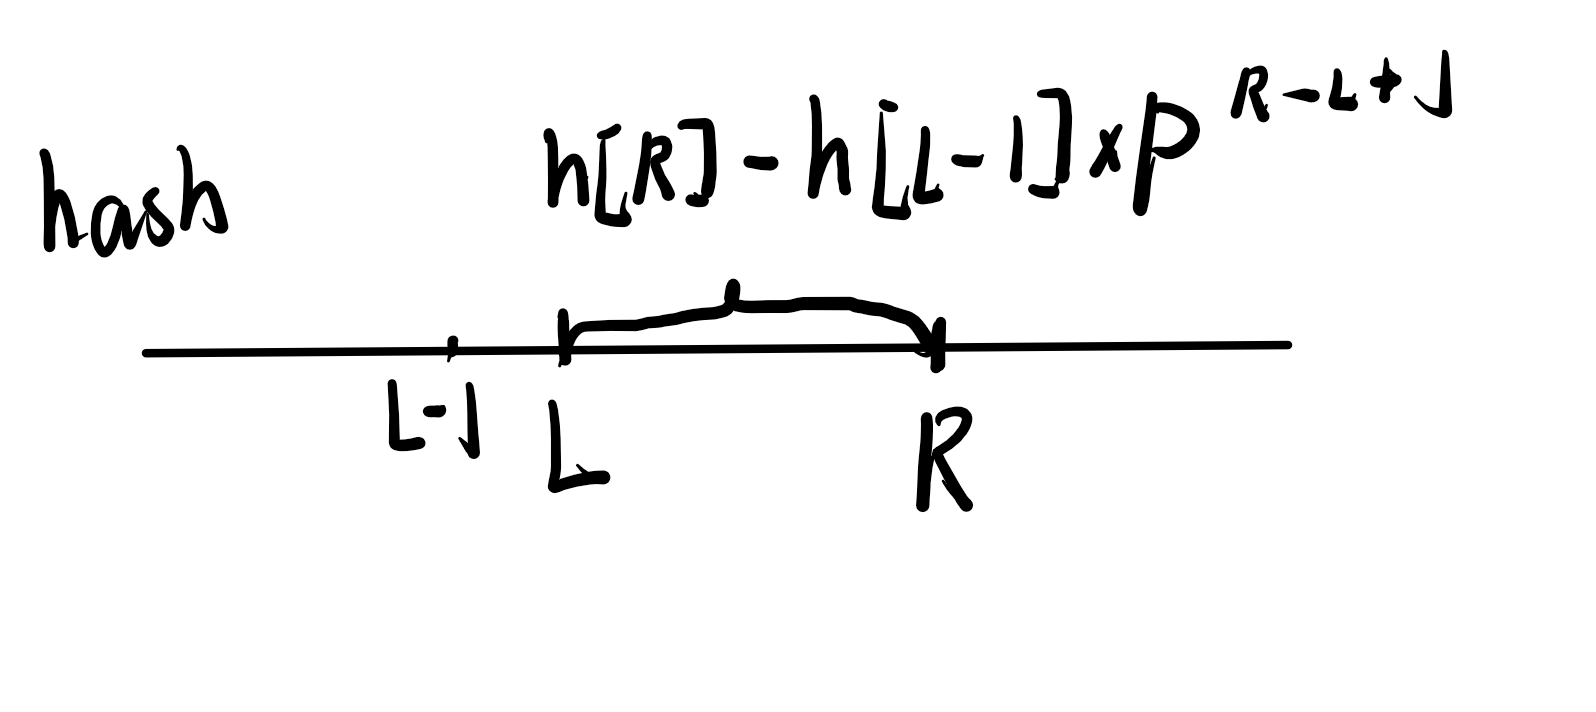 hash
h[R]-h[L-1]×P^{R-L+1}
L-1 L R